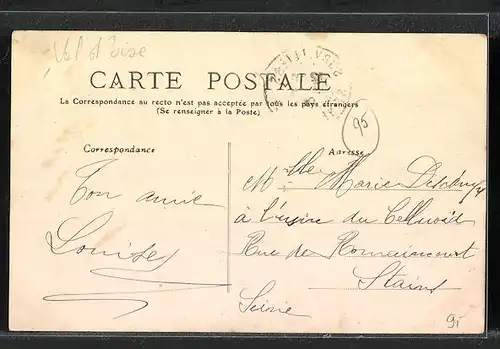 Val d'Oise
CARTE POSTALE
La Correspondance au recto n'est pas acceptée par tous les pays étrangers
(Se renseigner à la Poste)
95
Correspondance
Adresse
Ton amie
Louise
Mlle Marie
à l'usine du Celluloïd
Rue de Romaincourt
Stains
Seine
95